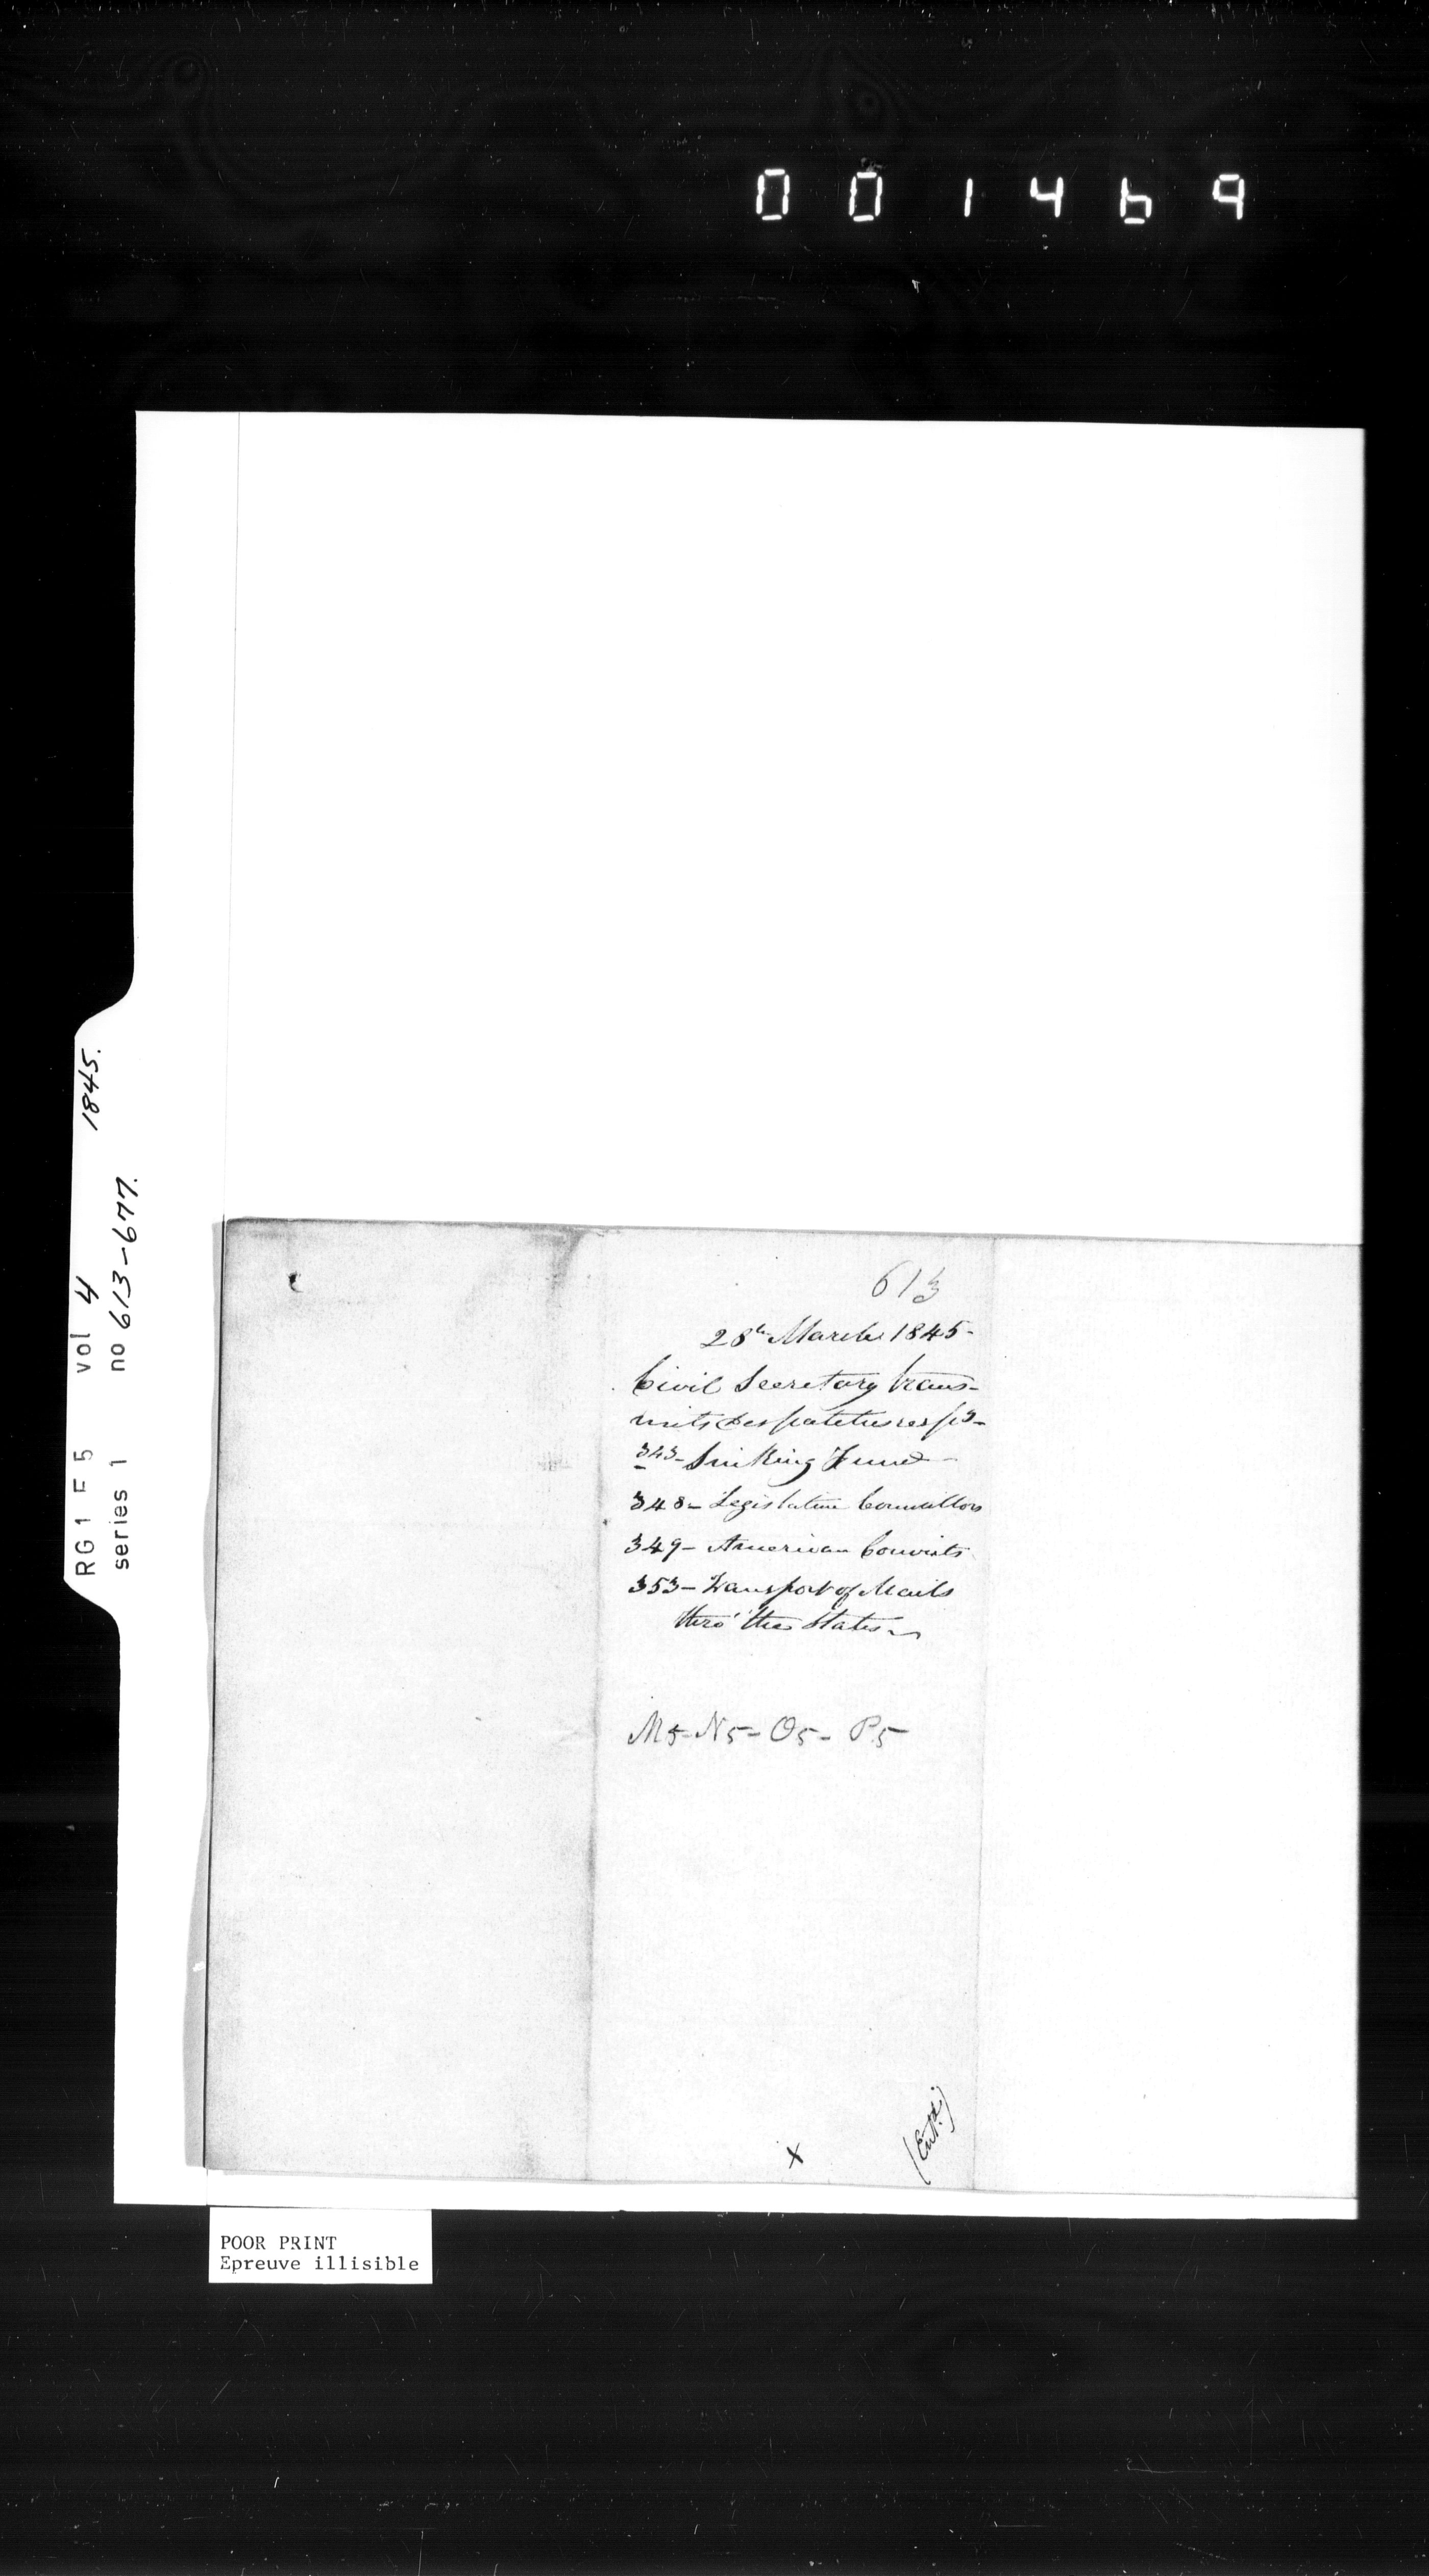 001469
RG1 E5 vol 4 1845.
series 1 no 613-677.
613
28th March 1845-
Civil Secretary trans-
mits despatches resp^g-
343- Sinking Fund-
348- Legislative Councillors
349- American Convicts
353- Transport of Mails
thro' the States
M5-N5-O5-P5
X
(Ent^d.)
POOR PRINT
Epreuve illisible